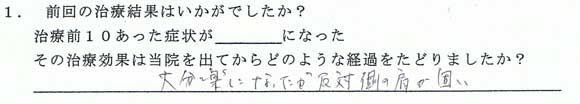 1． 前回の治療結果はいかがでしたか？
治療前１０あった症状が________になった
その治療効果は当院を出てからどのような経過をたどりましたか？
大分楽になったが反対側の肩が固い